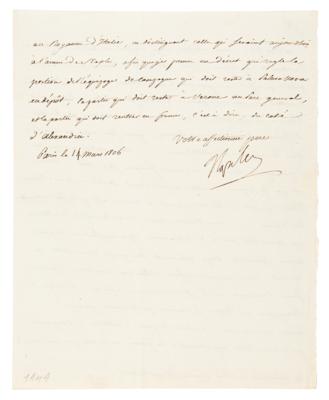 au Royaume d'Italie, en distinguant celle qui seraient aujourd'hui
à l'armée de Naple, afin que je prenne un décret qui règle la
portion de l'équipage de campagne qui doit rester à Palmanova
en dépôt; la partie qui doit rester à Verone en parc general,
et la partie qui doit rentrer en france, c'est à dire, du coté
d'Alexandrie.
Votre affectionné pere
Paris le 14 Mars 1806
Napoleon